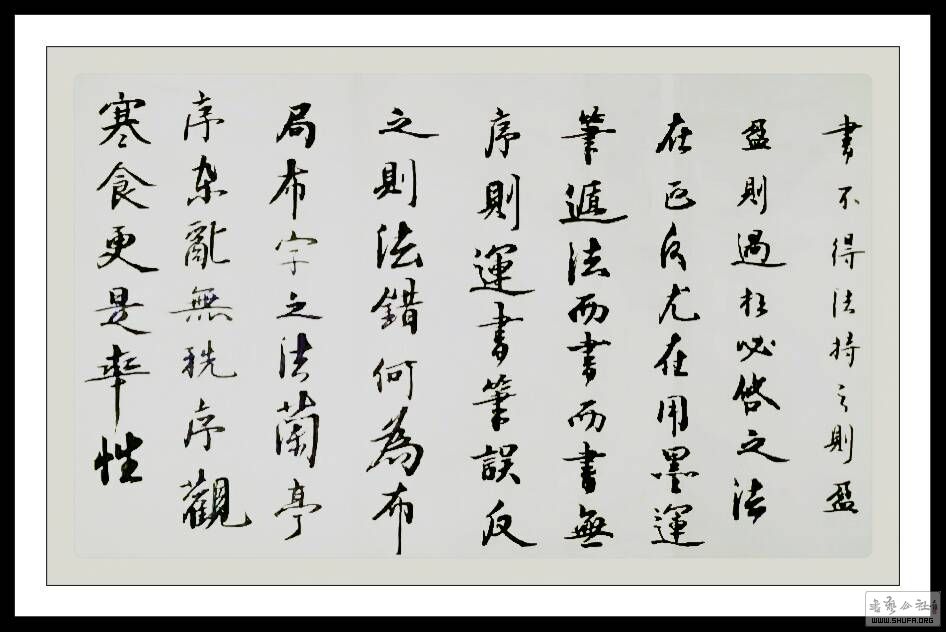 書不得法持之則盈
盈則過枉必之法
在尤在用墨運
筆遁法而書而書無
序則運書筆誤反
之則法錯何為布
局布字之法蘭亭
序杂亂無秩序觀
寒食更是率性
书艺公社
WWW.SHUFA.ORG